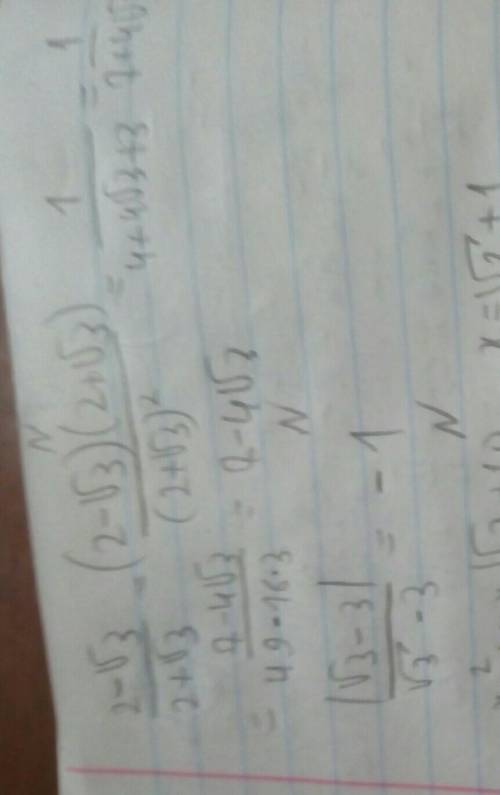 N
(2-√3)/(2+√3) = (2-√3)(2+√3)/(2+√3)² = 1/(4+4√3+3) = 1/(7+4√
= (7-4√3)/(49-16·3) = 7-4√3
N
|√3-3|/(√3-3) = -1
N
x=√3+1